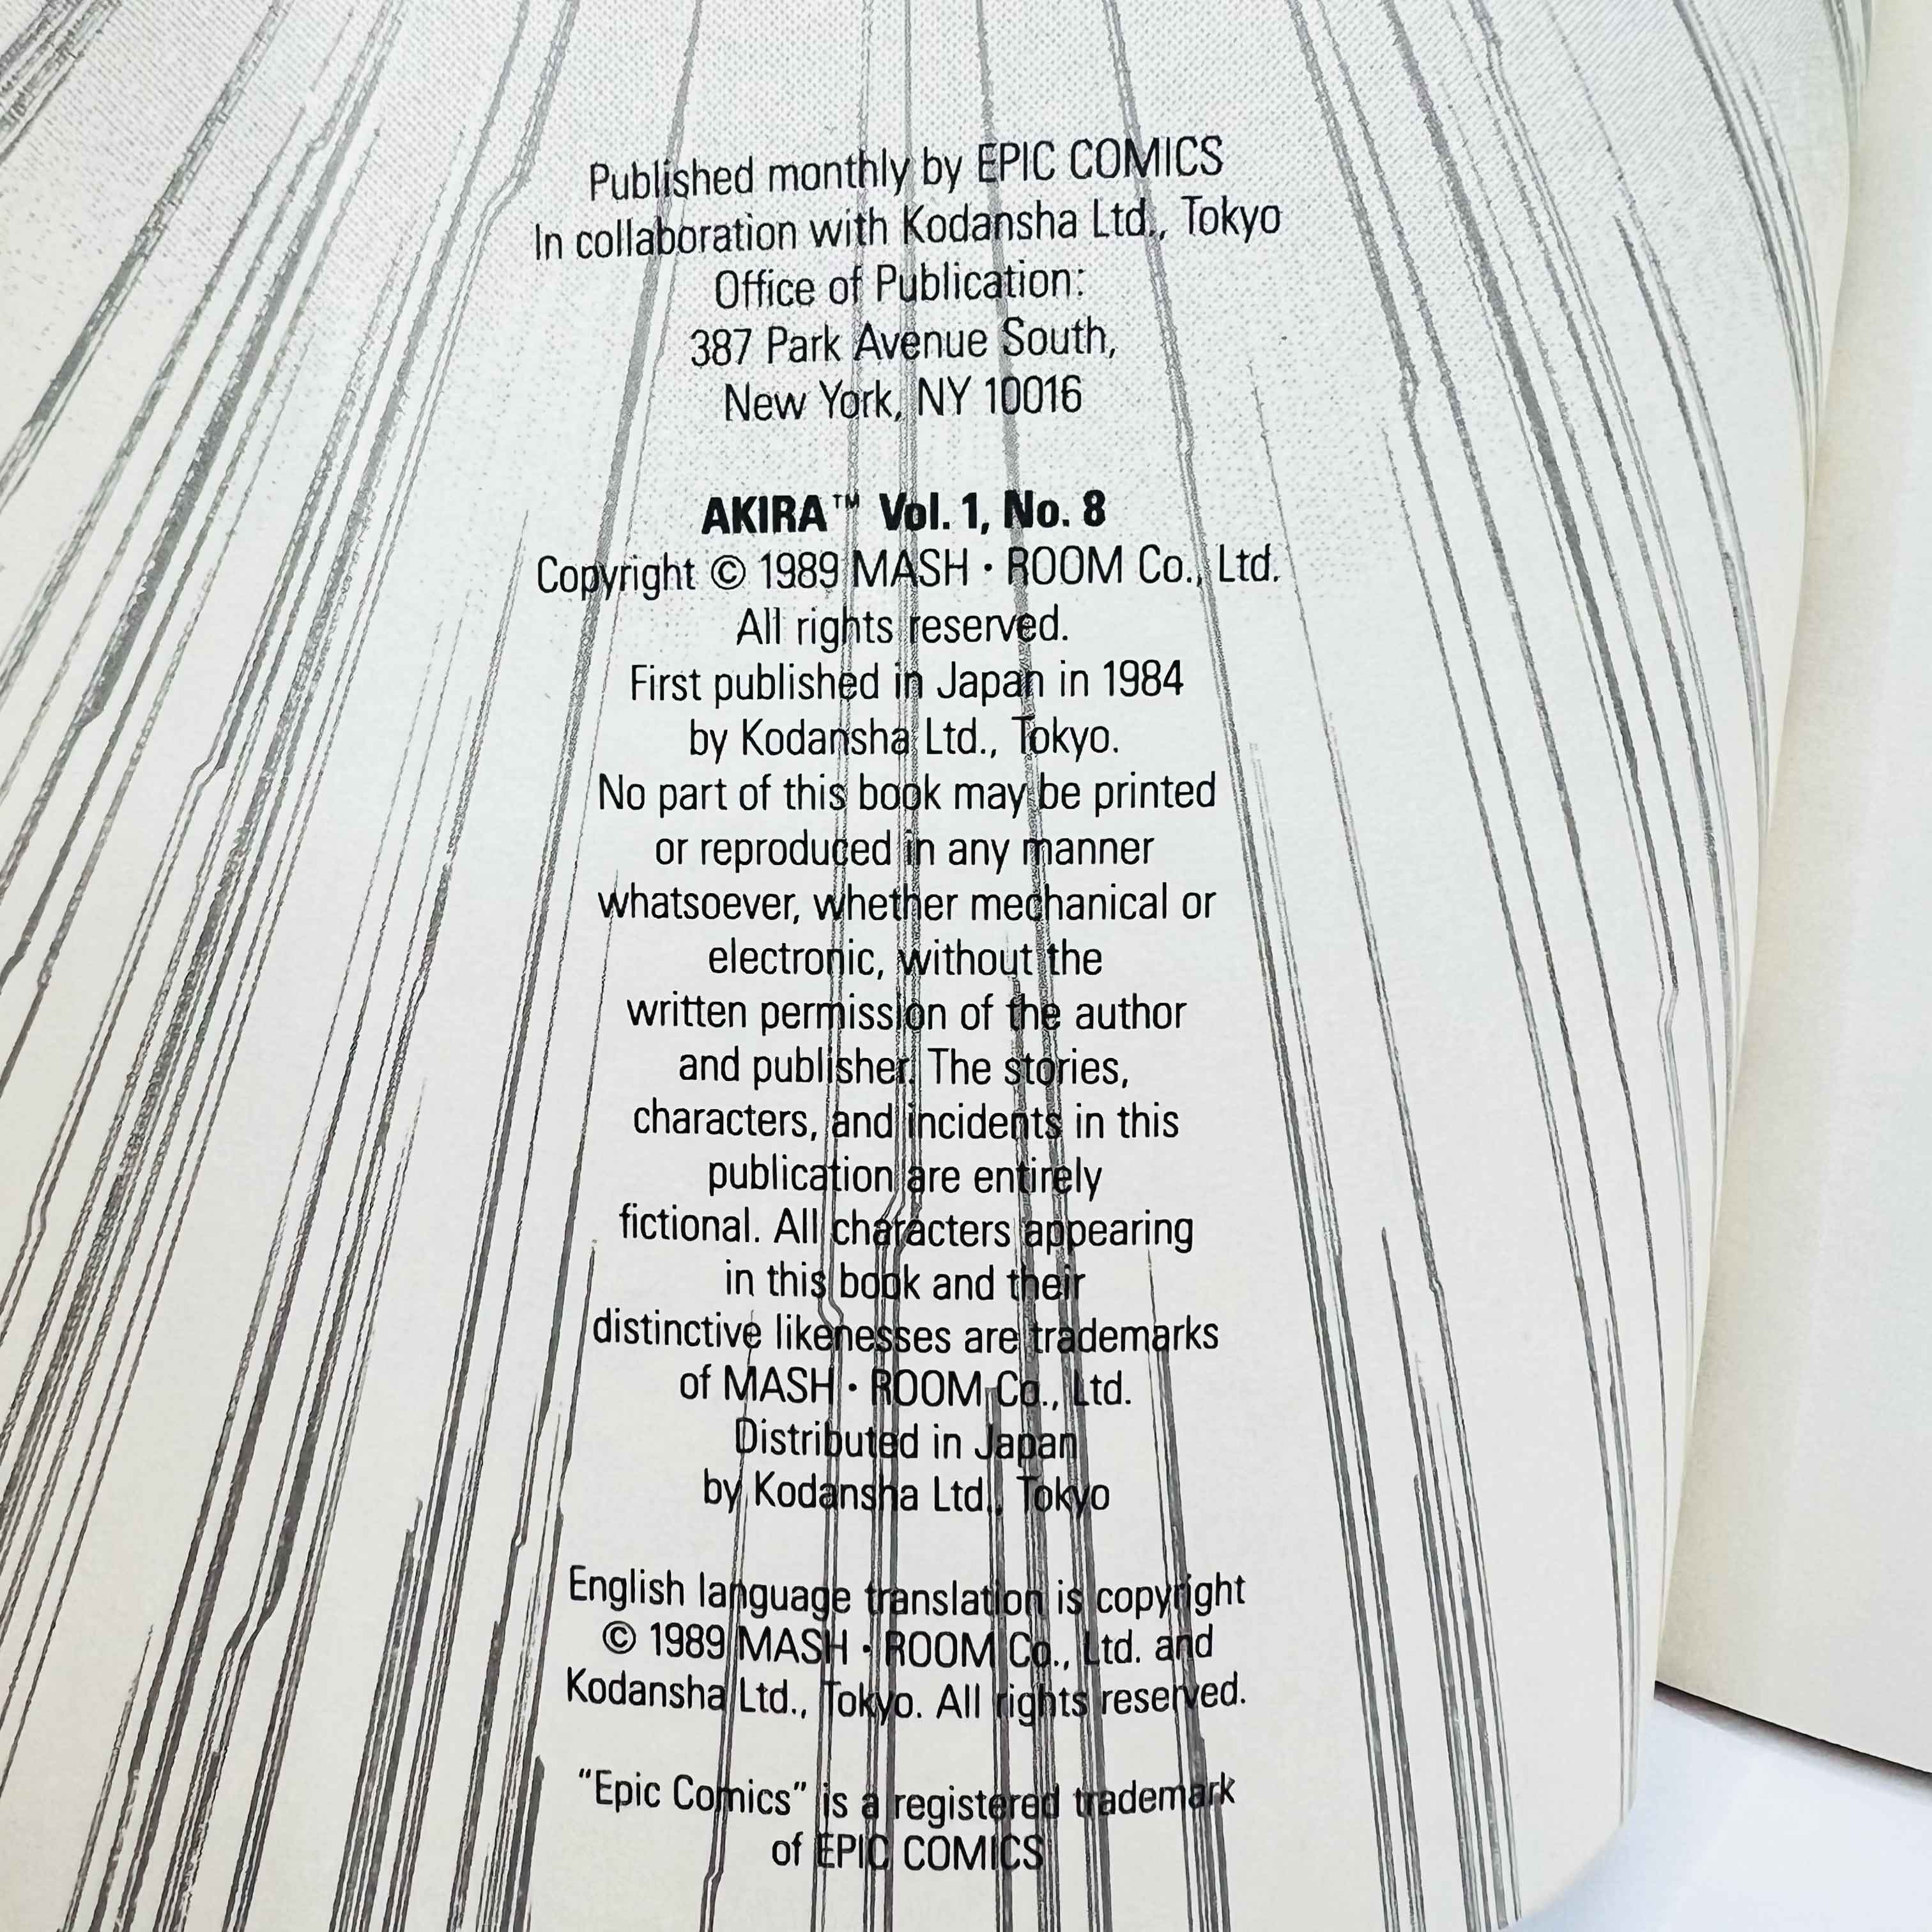 Published monthly by EPIC COMICS
In collaboration with Kodansha Ltd., Tokyo
Office of Publication:
387 Park Avenue South,
New York, NY 10016
AKIRA™ Vol. 1, No. 8
Copyright © 1989 MASH • ROOM Co., Ltd.
All rights reserved.
First published in Japan in 1984
by Kodansha Ltd., Tokyo.
No part of this book may be printed
or reproduced in any manner
whatsoever, whether mechanical or
electronic, without the
written permission of the author
and publisher. The stories,
characters, and incidents in this
publication are entirely
fictional. All characters appearing
in this book and their
distinctive likenesses are trademarks
of MASH • ROOM Co., Ltd.
Distributed in Japan
by Kodansha Ltd., Tokyo
English language translation is copyright
© 1989 MASH • ROOM Co., Ltd. and
Kodansha Ltd., Tokyo. All rights reserved.
“Epic Comics” is a registered trademark
of EPIC COMICS